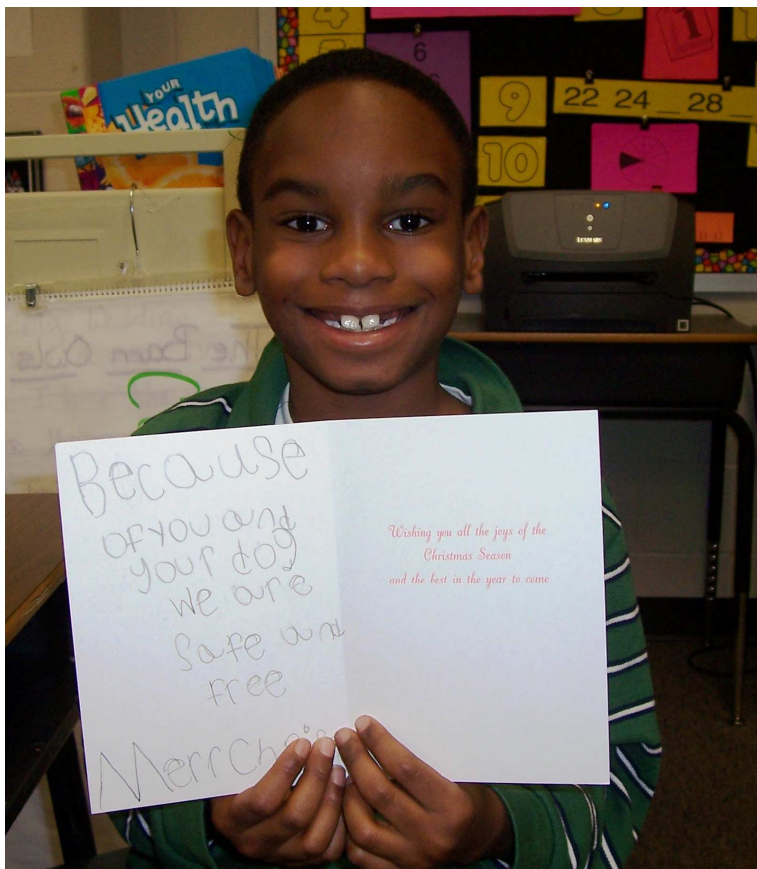 YOUR
Health
4
5
6
9
10
22 24 _ 28 _
1
LEXMARK
The Barn Owls
Because
of you and
your dog
we are
safe and
free
Merr Chri
Wishing you all the joys of the
Christmas Season
and the best in the year to come